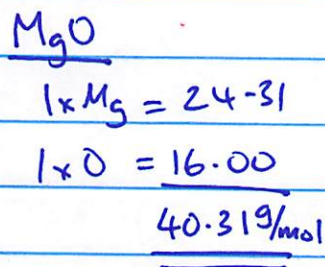 MgO
1×Mg = 24-31
1×O = 16.00
40.31g/mol